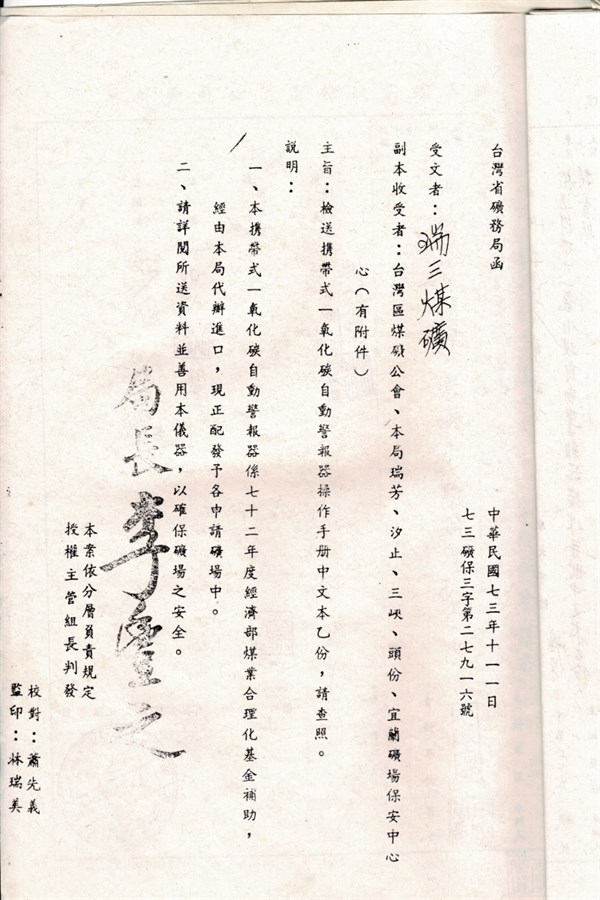 台灣省礦務局函
中華民國七三年十一一日
七三礦保三字第二七九一六號
受文者：瑞三煤礦
副本收受者：台灣區煤礦公會、本局瑞芳、汐止、三峽、頭份、宜蘭礦場保安中心
心（有附件）
主旨：檢送携帶式一氧化碳自動警報器操作手册中文本乙份，請查照。
説明：
一、本携帶式一氧化碳自動警報器係七十二年度經濟部煤業合理化基金補助，
經由本局代辦進口，現正配發予各申請礦場中。
二、請詳閱所送資料並善用本儀器，以確保礦場之安全。
局長李豐之
本業依分層負責規定
授權主管組長判發
校對：蕭先義
監印：林瑞美